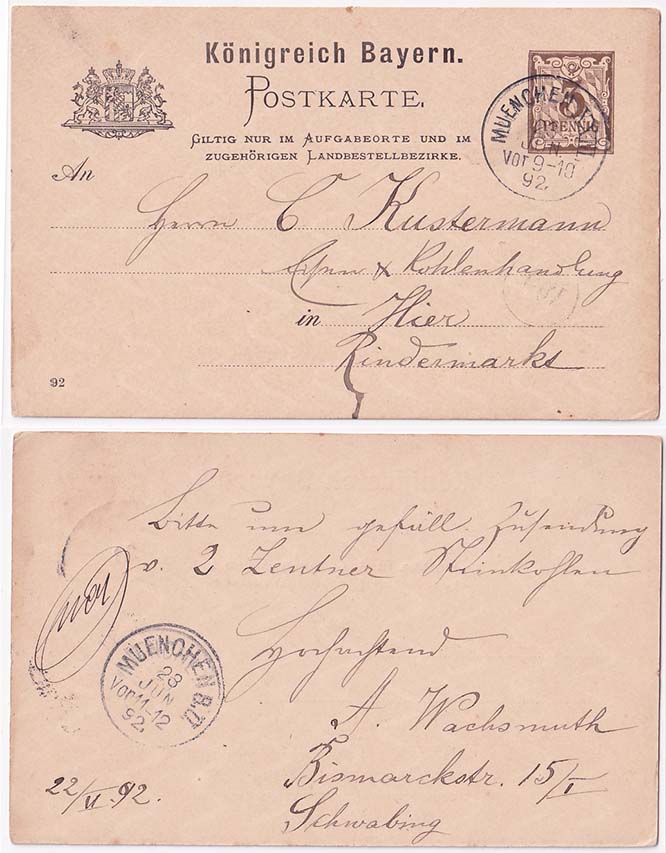 Königreich Bayern.
POSTKARTE.
GILTIG NUR IM AUFGABEORTE UND IM
ZUGEHÖRIGEN LANDBESTELLBEZIRKE.
PFENNIG
MUENCHEN
JUN.
Vor 9-10
92.
An
Herrn C Kustermann
Eisen & Kohlenhandlung
in Hier
Rindermarkt
92
Bitte um gefäll. Zusendung
v. 2 Zentner Steinkohlen
Hochachtend
A. Wachsmuth
Bismarckstr. 15/I
Schwabing
MUENCHEN 8.
23
JUN
Vor 11-12
92.
22/VI.92.